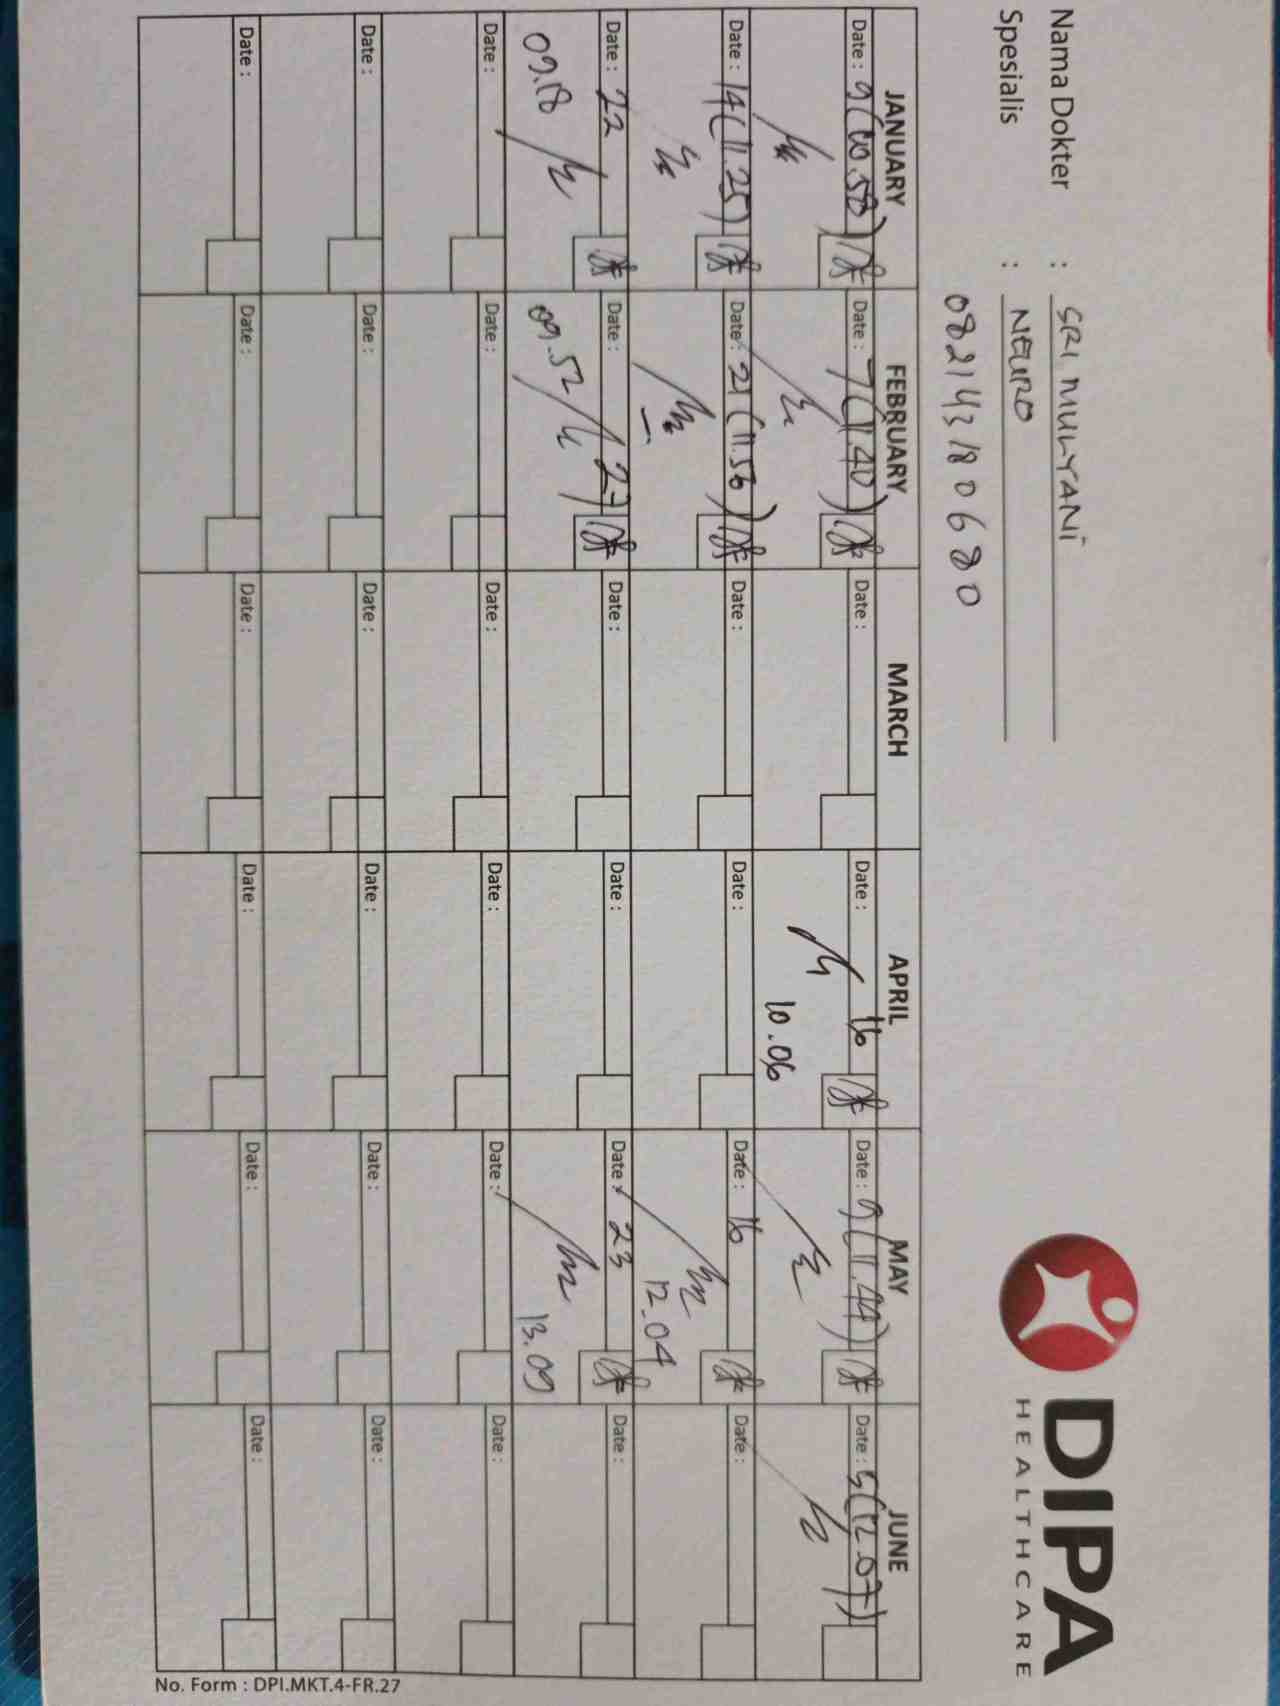 DIPA
HEALTHCARE
Nama Dokter : SRI MULYANI
Spesialis : NEURO
082143180680
JANUARY FEBRUARY MARCH APRIL MAY JUNE
Date : 9 (10.58) Date : 7 (11.40) Date : Date : 16 Date : 9 (11.44) Date : 5 (12.07)
10.06
Date : 14 (11.25) Date : 21 (11.56) Date : Date : Date : 16 Date :
12.04
Date : 22 Date : 27 Date : Date : Date : 23 Date :
09.18 09.52 13.09
Date : Date : Date : Date : Date : Date :
Date : Date : Date : Date : Date : Date :
Date : Date : Date : Date : Date : Date :
No. Form : DPI.MKT.4-FR.27